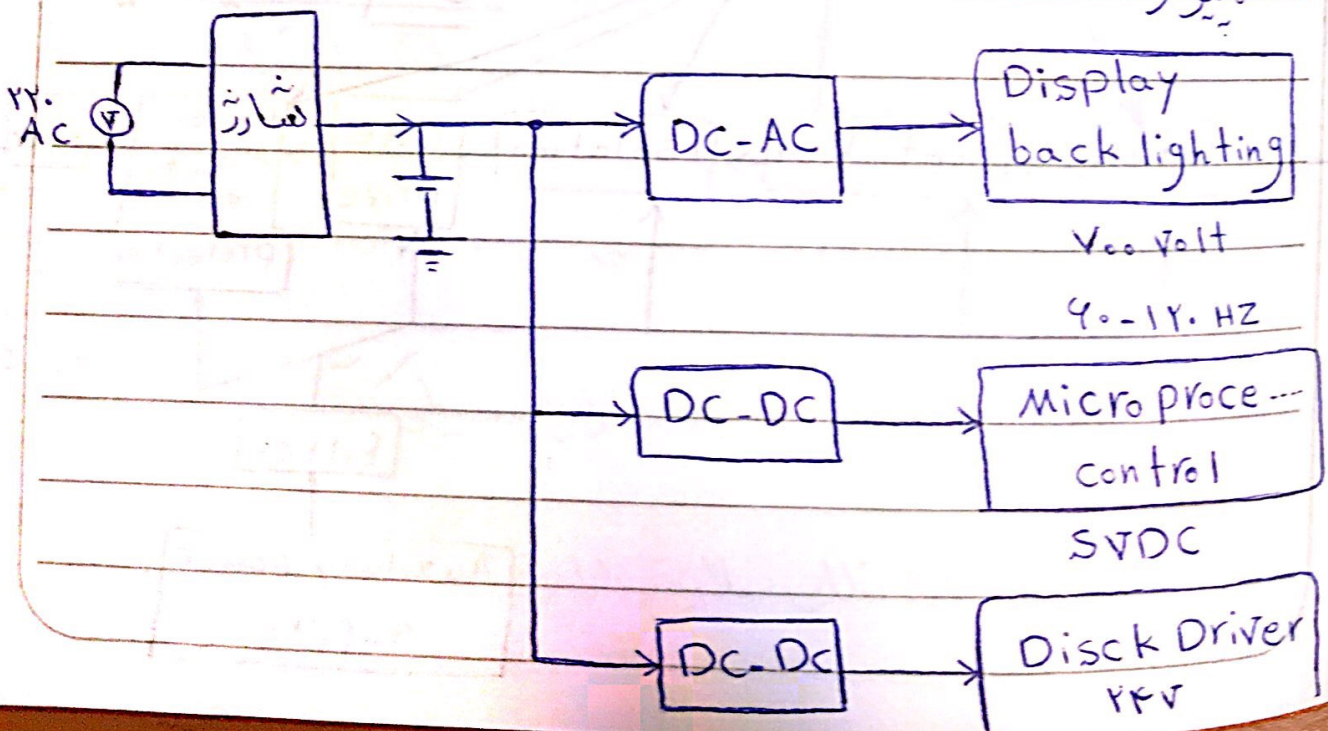 ۲۲۰
AC
V
شارژ
DC-AC
Display
back lighting
۷۰۰ Volt
۶۰-۱۲۰ HZ
DC-DC
Micro proce---
control
5VDC
DC-DC
Disck Driver
۲۴V